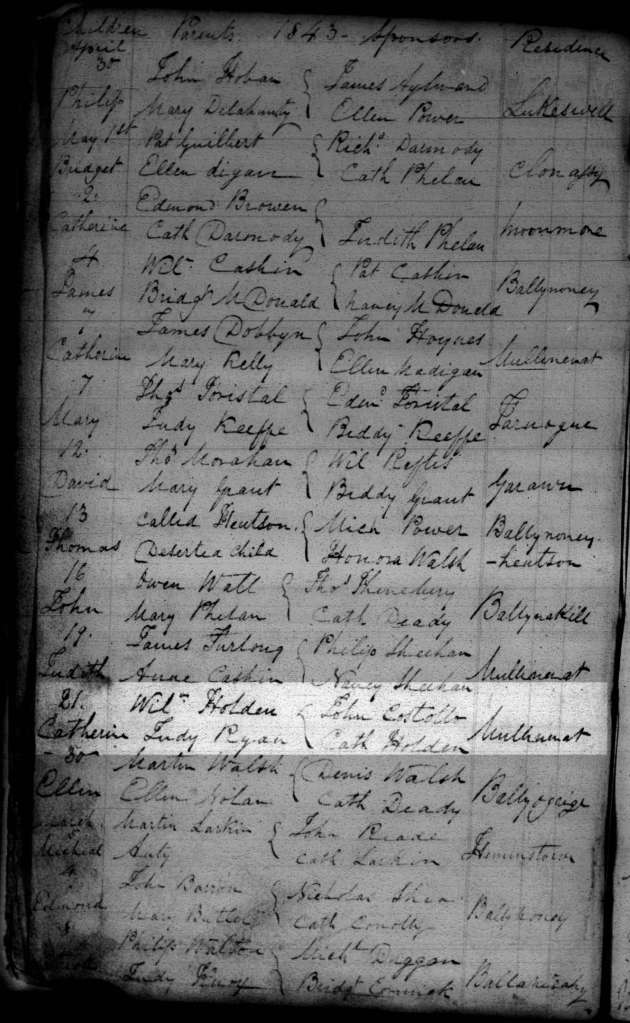 Children Parents 1843 - Sponsors. Residence
April
30 John Hoban James Aylward
Philip Mary Delahunty Ellen Power Lukeswell
May 1st Pat Guilbert Richd Darmody
Bridget Ellen digan Cath Phelan Clonassy
2. Edmond Browen
Catherine Cath Darmody Judith Phelan Moonmore
4 Wilm Cashin Pat Cashin
James Bridgt McDonald Nancy McDonald Ballynoney
" James Dobbyn John Hoynes
Catherine Mary Kelly Ellen Madigan Mullinevat
7 Thos Foristal Edmd Foristal
Mary Judy Keeffe Biddy Keeffe Farnogue
12. Thos Morahan Wil
David Mary Grant Biddy Grant Garawn
13 called Heutson. Mich Power Ballynoney-
Thomas Deserted child Honora Walsh -heutson
16 Owen Wall Thos
John Mary Phelan Cath Deady Ballynakill
19. James Furlong Philip Sheehan
Judith Anne Cashin Nancy Sheehan Mullinevat
21. Wilm Holden John Costollo
Catherine Judy Ryan Cath Holden Mullinevat
30 Martin Walsh Denis Walsh
Ellen Ellen Nolan Cath Deady
March Martin Larkin John Reade
Micheal Cath Larkin
4 John Barron Nicholas Shea
Edmond Mary Butler Cath Conolly
Philip Walton Michl Duggan
Judy Bridgt Cormick